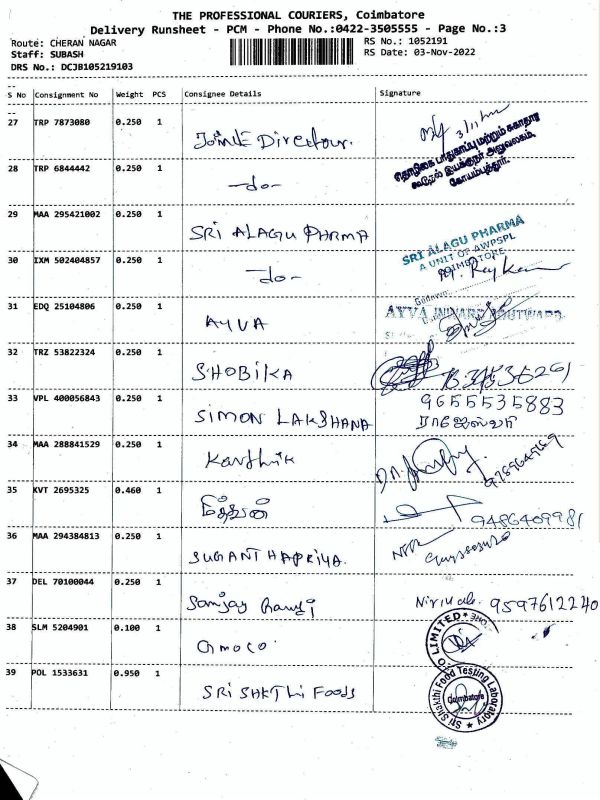 THE PROFESSIONAL COURIERS, Coimbatore
Delivery Runsheet - PCM - Phone No.:0422-3505555 - Page No.:3
Route: CHERAN NAGAR RS No.: 1052191
Staff: SUBASH RS Date: 03-Nov-2022
DRS No.: DCJB105219103
S No Consignment No Weight PCS Consignee Details Signature
27 TRP 7873080 0.250 1 Director. 3/11/
தொழிலக பாதுகாப்பு மற்றும் சுகாதார
இயக்குநர் அலுவலகம்,
கோயம்புத்தூர்.
28 TRP 6844442 0.250 1 -do-
29 MAA 295421002 0.250 1 SRI ALAGU PHARMA
SRI ALAGU PHARMA
A UNIT OF AWPSPL
COIMBATORE
30 IXM 502404857 0.250 1 -do-
31 EDQ 25104806 0.250 1 AYVA
AYVA INWARD/OUTWARD
32 TRZ 53822324 0.250 1 SHOBIKA
33 VPL 400056843 0.250 1 SIMON LAKSHANA 9655535883
ராஜேஸ்வரி
34 MAA 288841529 0.250 1 Karthik
35 KVT 2695325 0.460 1 9486409981
36 MAA 294384813 0.250 1 SUGANTHAPRIYA.
37 DEL 70100044 0.250 1 Sanjay 9597612240
38 SLM 5204901 0.100 1 Amoco
LIMITED
39 POL 1533631 0.950 1 SRI SHKTHI FOODS
Sri Shakthi Food Testing Laboratory
Coimbatore